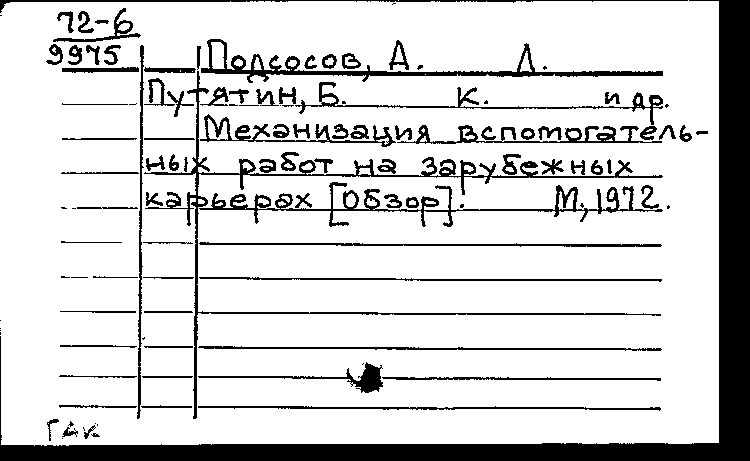 72-6
9975
Подсосов, А. Д.
Путятин, Б. К. и др.
Механизация вспомогатель-
ных работ на зарубежных
карьерах [Обзор]. М., 1972.
ГАК